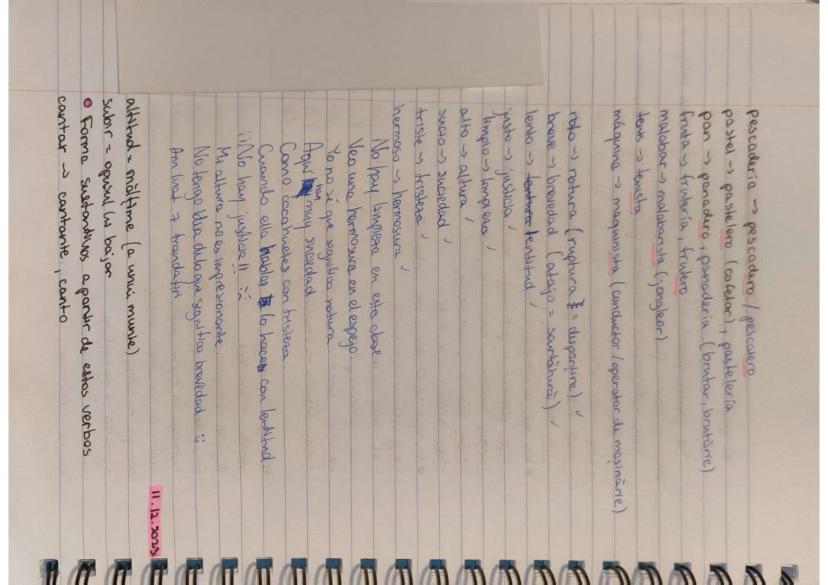 pescadería → pescadero / pescatero
pastel → pastelero (cofetar), pastelería
pan → panadero, panadería (brutar, brutărie)
fruta → frutería, frutero
malabar → malabarista (jongleor)
tenis → tenista
máquina → maquinista (conductor / operator de mașinărie)
roto → rotura (ruptura ≠ despărțire) ✓
breve → brevedad (atajo = scurtătură) ✓
lento → lentitud ✓
justo → justicia ✓
limpio → limpieza ✓
alto → altura ✓
sucio → suciedad ✓
triste → tristeza ✓
hermoso → hermosura ✓
No hay limpieza en esta clase.
Veo una hermosura en el espejo.
Yo no sé que significa rotura
Aquí hay muy suciedad
Como cacahuetes con tristeza
Cuando ella habla lo hace con lentitud.
¡¡No hay justicia!!
Mi altura no es impresionante.
No tengo idea de lo que significa brevedad
Am luat 7 trandafiri
11.12.2025
altitud = înălțime (a unui munte)
subir = opusul lui bajar
• Forma sustantivos a partir de estos verbos
cantar → cantante, canto